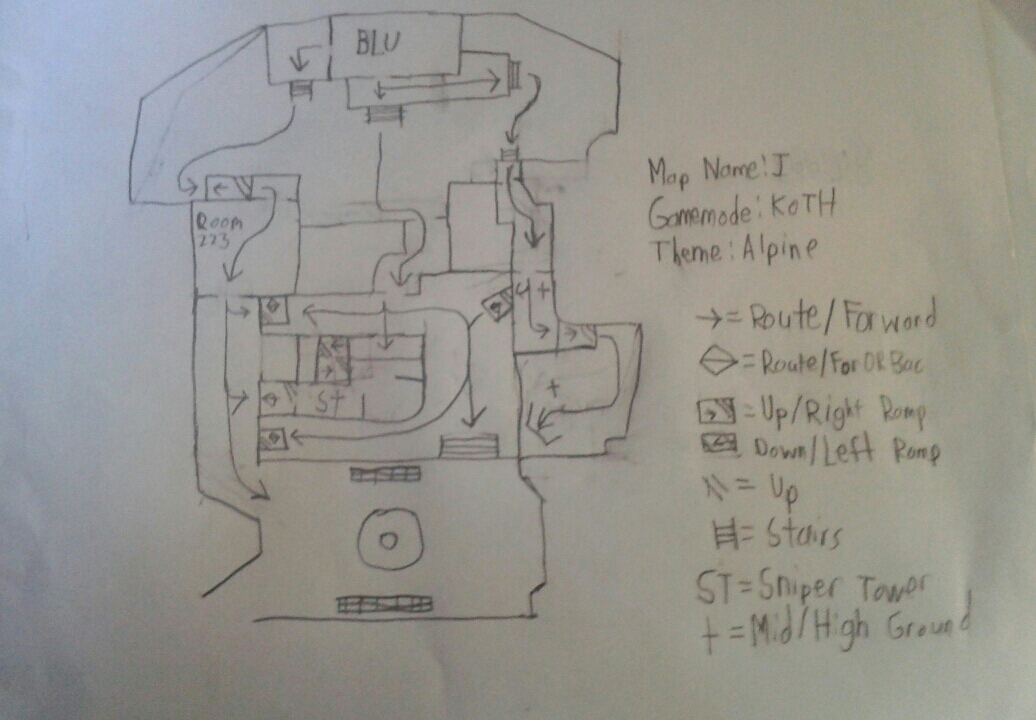 BLU
Room
223
ST
+
+
Map Name: J
Gamemode: KOTH
Theme: Alpine
→ = Route/Forward
= Route/For OR Bac
= Up/Right Ramp
= Down/Left Ramp
= Up
= Stairs
ST = Sniper Tower
+ = Mid/High Ground